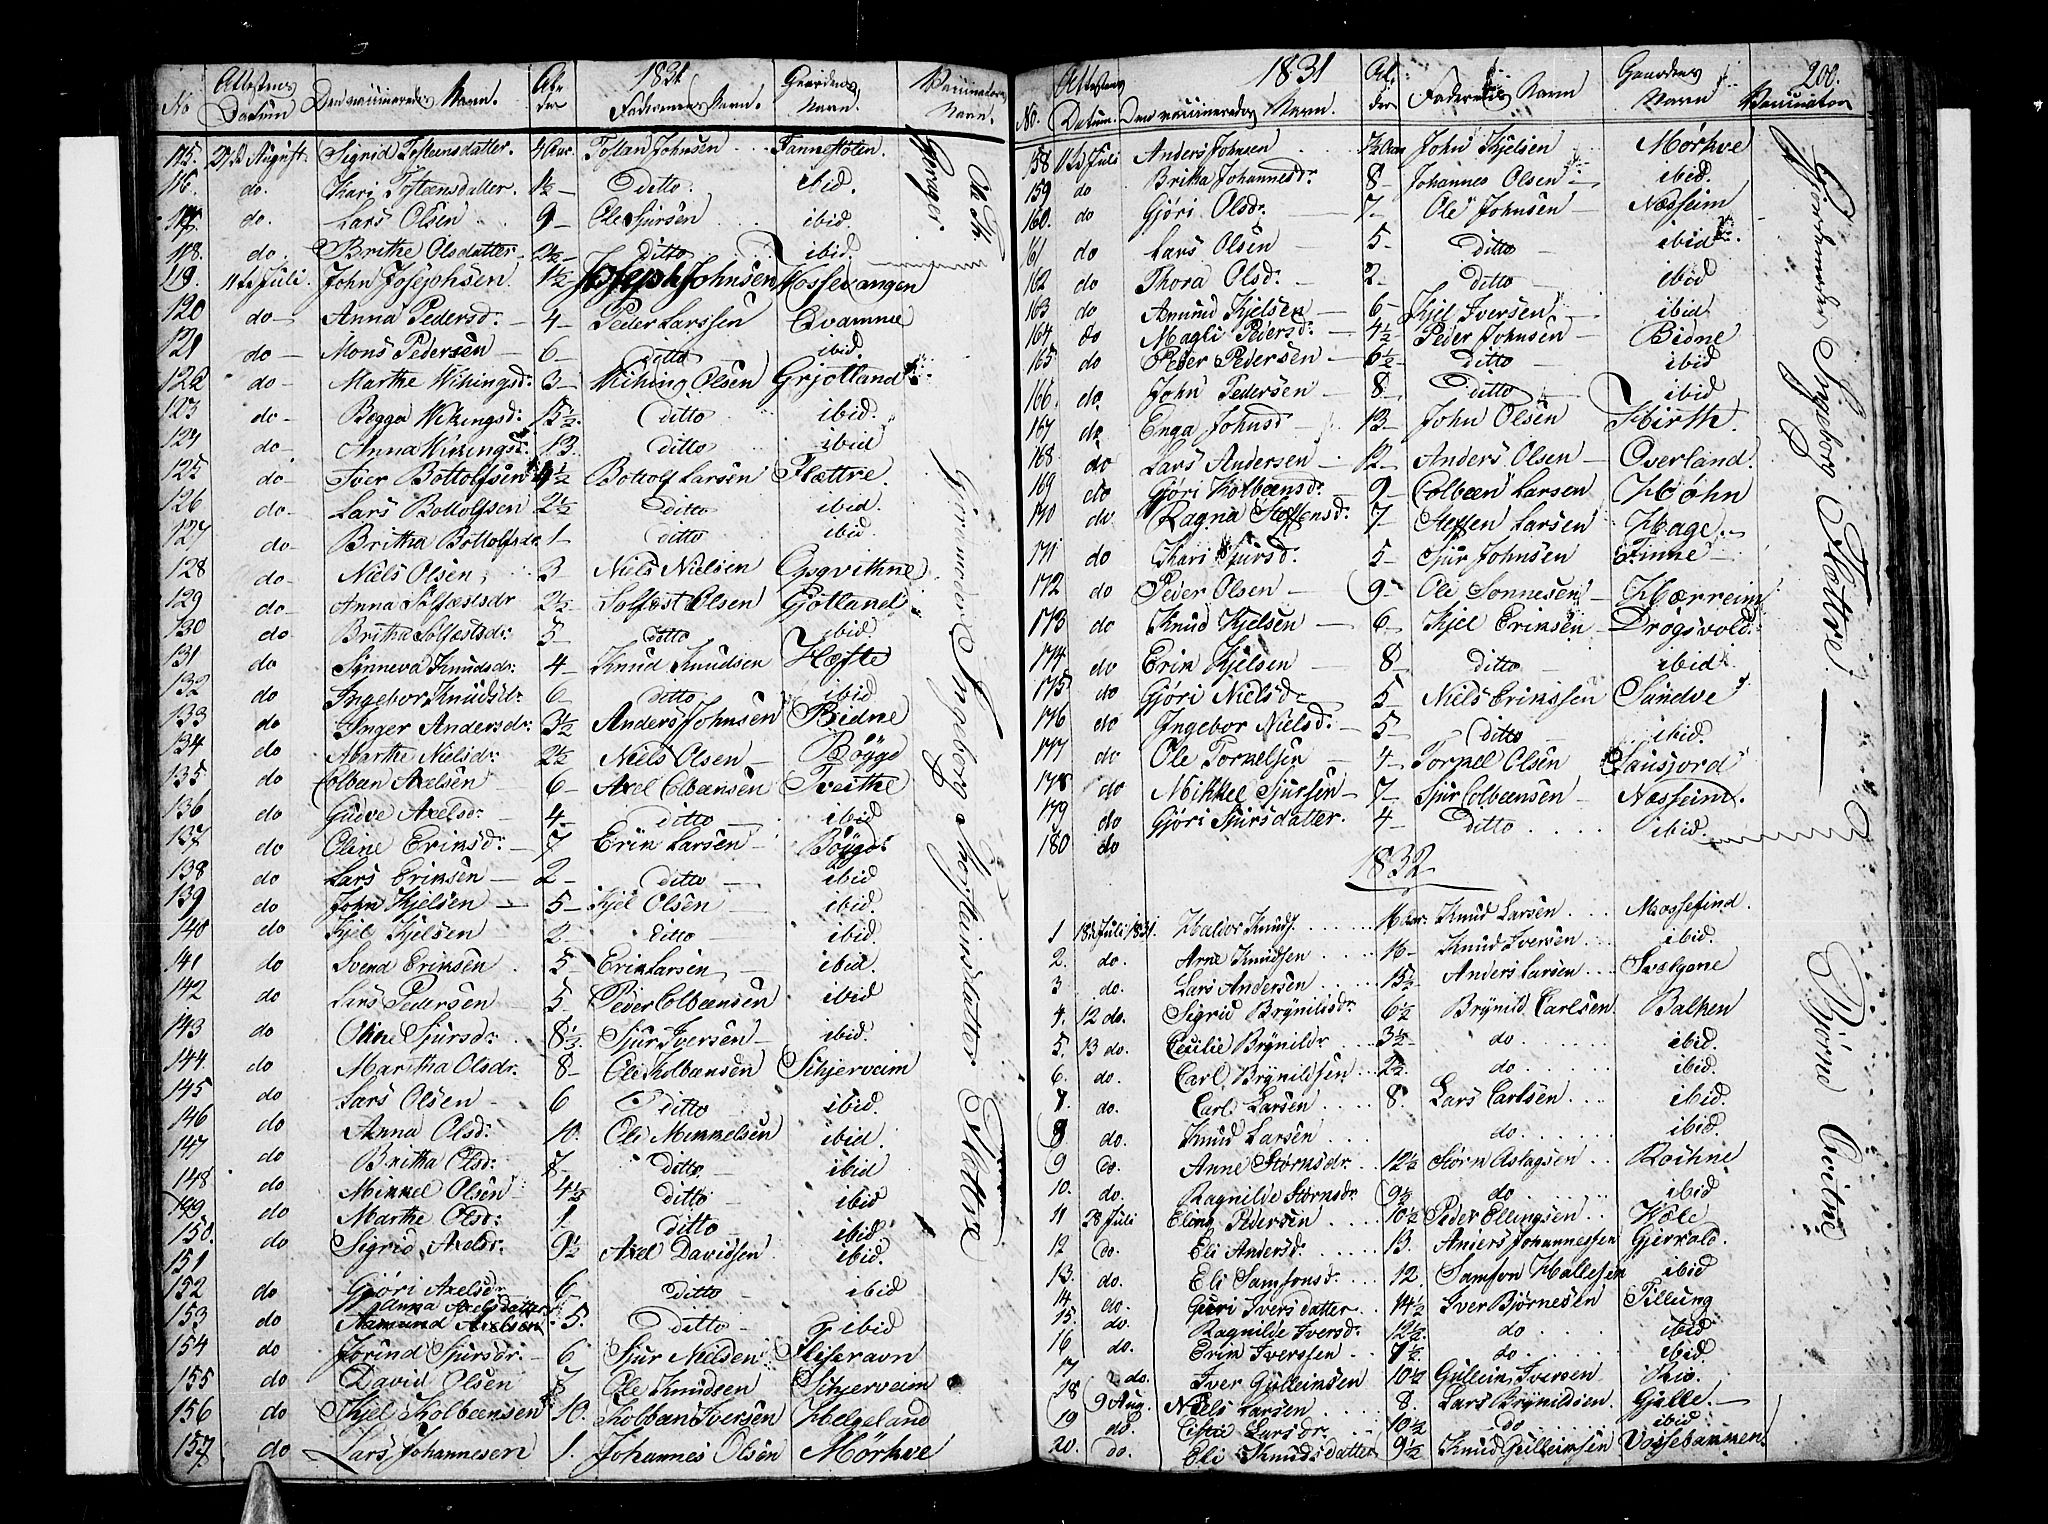 1831
No Attestens Datum Den vaccineredes Navn. Alder Faderens Navn. Gaardens Navn. Vaccinators Navn.
115. 27de August. Sigrid Tostensdatter. 4 Aar. Tostan Johnsen Tanneftolen.
116. do. Kari Tostensdatter. 1½ – Ditto. ibid.
117. do. Lars Olsen 9 – Ole Sjursen ibid.
118. do. Brithe Olsdatter 2½ – ditto ibid.
119. 11te Juli. John Josephsen. 1½ Joseph Johnsen Vossevangen
120 do – Anna Pedersd: – 4 – Peder Larssen Qvamme
121 do – Mons Pedersen – 6 – ditto ibid.
122 do – Marthe Wikingsd: 3 – Wiking Olsen Grjotland
123 do – Begga Wikingsd: 15½. ditto ibid.
124 do – Anna Wikingsd: 13. ditto ibid
125 do – Iver Bottolfsen 4½ Bottolf Larsen Flættre.
126 do – Lars Bottolfsen 2½ ditto ibid.
127 do – Britha Bottolfsdr. 1 – ditto ibid.
128 do – Niels Olsen 3 – Niels Nielsen
129 do – Anna Sølfæstsdr 2½ – Solfæst Olsen Gjotland
130 do. Britha Sølfæstsdr: 5 – ditto ibid.
131 do Synneva Knudsdr: 4 – Knud Knudsen Hæfte
132 do Ingebor Knudsdr: 6 – ditto ibid
133 do Inger Andersdr: 3½ Anders Johnsen Bidne
134 do Marthe Nielsdr: 2½ Niels Olsen – Bøyge
135 do Colban Axelsen 6 – Axel Colbensen Tveithe
136 do Gudve Axelsd: 4 – ditto – ibid
137 do Oline Eriksd: 7 Erik Larsen – Bøyge
138 do Lars Eriksen – 2 – ditto – ibid
139 do John Kjelsen – 5 – Kjel Olsen – ibid
140 do Kjel Kjelsen 2 – ditto – ibid.
141 do Svend Eriksen 5 – Erik Larsen – ibid.
142 do Lars Pedersen 5. Peder Colbensen ibid
143 do Oline Sjursdr. 8½ Sjur Iversen – ibid.
144. do Martha Olsdr. 8 – Ole Kolbensen Schjerveim
145 do Lars Olsen – 6 Ditto – ibid.
146 do Anna Olsd: 10. Ole Mikkelsen ibid.
147 do Britha Olsd: 7 – ditto ibid
148 do Mikkel Olsen 4½ ditto ibid
149 do Marthe Olsd: 1. ditto ibid.
150. do Sigrid Axeldr. 9½ Axel Davidsen ibid.
151
152 do Gjøri Axelsdr 6 ditto – ibid
153 do Anna Axelsdatter Aamund Axelsen 5. Ditto – ibid
154 do Jorind Sjursdr. – 6 Sjur Nilsen
155 do David Olsen 7 Ole Knudsen Schjerveim
156 do Kjel Kolbensen 10. Kolban Iversen Helgeland
157 do Lars Johannesen 1. Johannes Olsen Mørkve
O. Th. Gjerager.
Gjordemoder Ingeborg Mogtairsdatter Flattre
1831 200.
No. Attestens Datum. Den vaccineredes Navn. Alder Faderens Navn Gaardens Navn Vaccinators
158 11te Juli Anders Johnsen John Kjelsen Mørkve
159 do Britha Johannesdr. 8 – Johannes Olsen – ibid.
160. do Gjöri Olsdr. 7 – Ole Johnsen – Næsheim
161 do Lars Olsen – 5 – ditto – ibid
162 do Thora Olsd: – 2 – ditto – ibid
163 do Amund Kjelsen – 6 – Kjel Iversen – ibid
164 do Magli Pedersd: 4½ Peder Johnsen – Bidne
165 do Peder Pedersen – 6½ – ditto – ibid
166. do. John Pedersen – 8 – ditto – ibid
167 do Enga Johnsd – 13 – John Olsen Hirth.
168 do Lars Andersen – 12 – Anders Olsen – Overland.
169 do Gjöri Kolbensdr. 9 – Colben Larsen Høhn
170 do Ragna Steffensd: 7 – Steffen Larsen Hage –
171 do Kari Sjursd: 5 – Sjur Johnsen Finne –
172 do Peder Olsen – 9 – Ole Sonnesen – Hærreim
173 do Knud Kjelsen – 6 – Kjel Eriksen – Drogsvold.
174 do Erik Kjelsen – 8 – ditto – ibid
175 do Gjöri Nielsdr. 5 – Niels Erikssen Sundve
176 do Ingebor Nielsd: – 5 – ditto – ibid.
177 do Ole Torkelsen – 4 – Torkel Olsen Sausjord
178 do Mikkel Sjursen – 7 – Sjur Colbensen – Næsheim.
179 do Gjöri Sjursdatter. 4 – Ditto ibid.
180 do
1832
1 18de Juli 1831. Haldor Knuds. 16 Aar. Knud Larsen Mossefind.
2. do. Arne Knudsen 16 – Knud Iversen ibid.
3 do. Lars Andersen 15½ – Anders Larsen Svelgene
4. 12 do. Sigrid Brynildsdr. 6½ Brynild Carlsen. Balken
5. 13 do. Cecilie Brynildr. 3½ – do ibid.
6. do. Carl Brynildsen 2½. do ibid.
7. do. Carl Larsen 8. Lars Carlsen ibid.
8 do. Knud Larsen do. ibid.
9 do. Anne Størksdr. 12½ Størk Aslagsen Rokne
10. do. Ragnilde Størksdr. 9½ do ibid
11 28 Juli Eling Pedersen 10½ Peder Ellingsen Høle
12 do. Eli Andersd. 13. Anders Johannessen Gjerrald.
13. do. Eli Samsonsd. 12. Samson Hallesen ibid
14. do. Guri Iversdatter 14½ Iver Bjørnesen Tillung
15. do. Ragnilde Iversd. 12½. do ibid
16 do. Erik Iverssen 7½. do ibid.
17 do. Iver Gulleiksen 10½ Gulleik Iversen Rio.
18 9 Aug. Niels Larsen 8. Lars Brynildsen Gjelle. –
19 do. Larsdr. 10½ do ibid
20. do. Eli Knudsdatter 9½ Knud Gulleiksen
Gjordemoder Ingeborg Flattre –
Bjørne